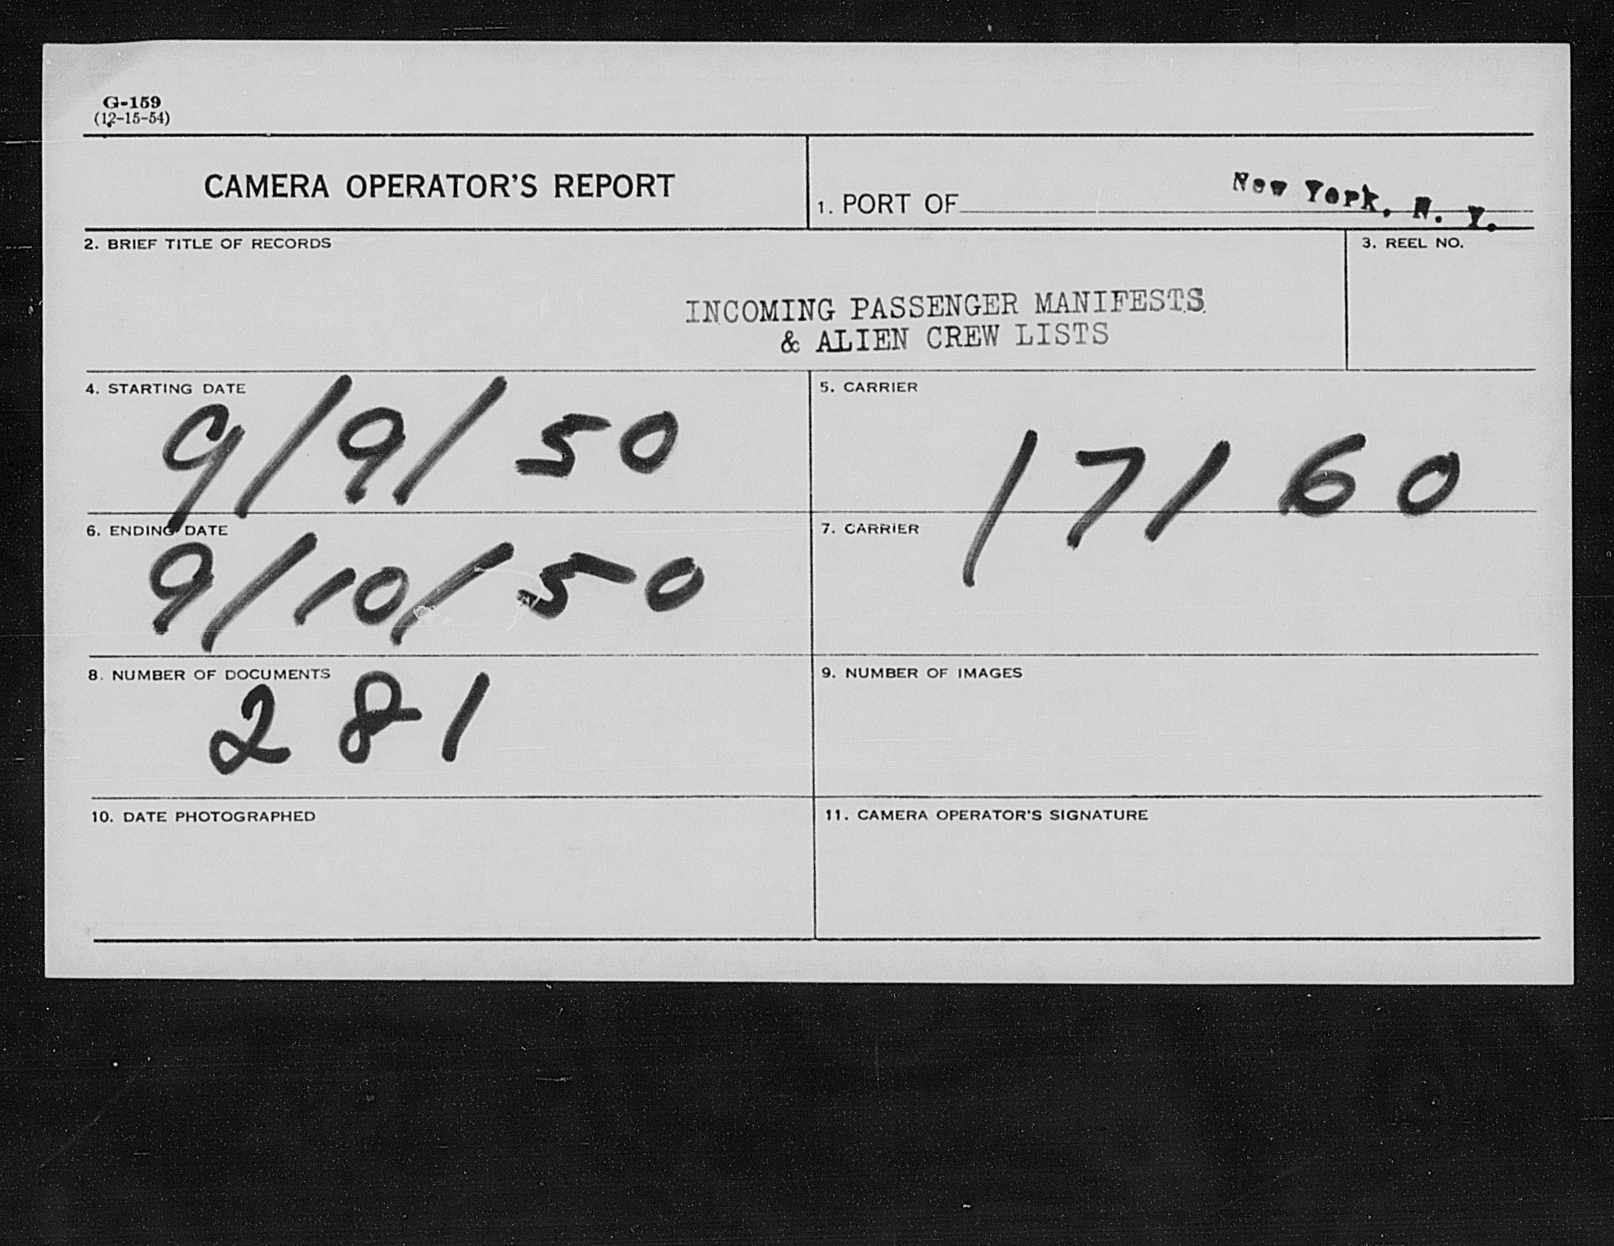 G-159
(12-15-54)
CAMERA OPERATOR'S REPORT
1. PORT OF New York, N. Y.
2. BRIEF TITLE OF RECORDS
3. REEL NO.
INCOMING PASSENGER MANIFESTS
& ALIEN CREW LISTS
4. STARTING DATE
9/9/50
5. CARRIER
17160
6. ENDING DATE
9/10/50
7. CARRIER
8. NUMBER OF DOCUMENTS
281
9. NUMBER OF IMAGES
10. DATE PHOTOGRAPHED
11. CAMERA OPERATOR'S SIGNATURE